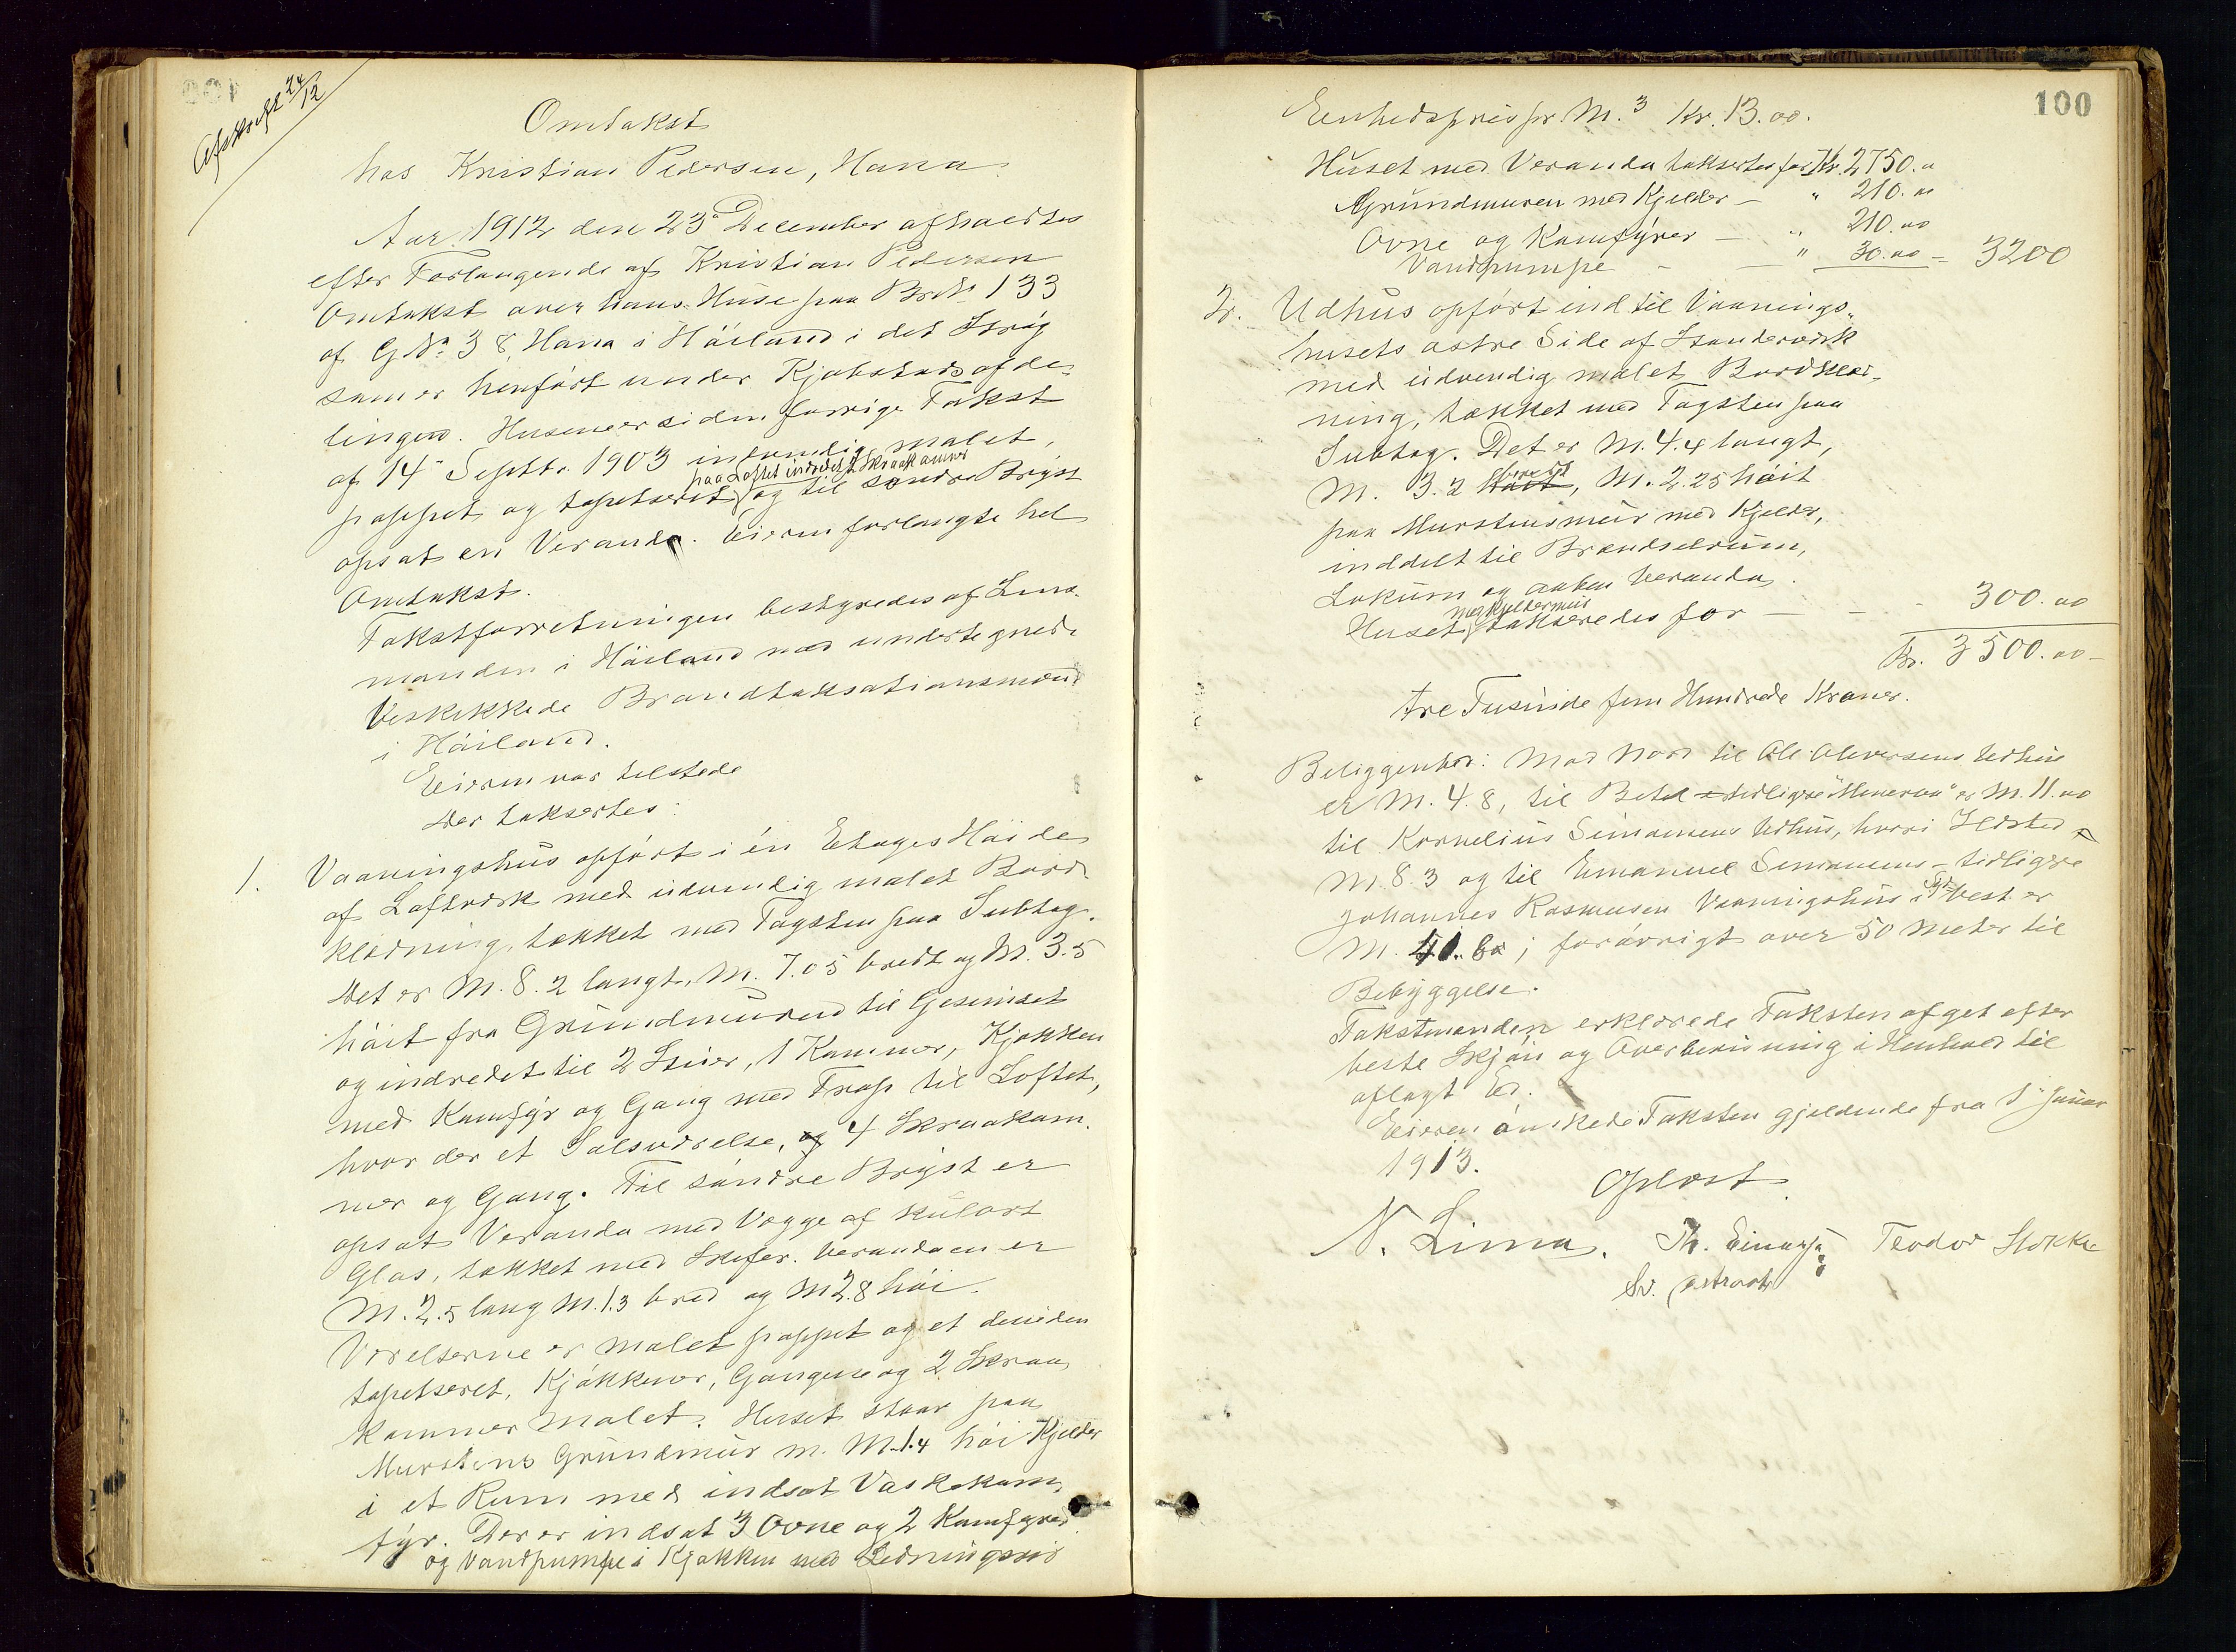 Afskrift 24/12
Omtakst
hos Kristian Pedersen, Hana.
Aar 1912 den 23de December afholdtes
efter Forlangende af Kristian Pedersen
Omtakst over hans Huse paa Br.No. 133
af G.No. 38, Hana i Höiland i det Strög
som er henfört under Kjøbstadsafde-
lingen. Husene er siden forrige Takst
af 14de Septbr. 1903 indvendig malet,
paa Loftet indredet 2 Skraakamre
pappet og tapetseret og til søndre Bryst
opsat en Veranda. Eieren forlangte hel
Omtakst.
Takstforretningen bestyredes af Lens-
manden i Höiland med undertegnede
beskikkede Brandtaksationsmænd
i Höiland.
Eieren var tilstede
Der taksertes:
1. Vaaningshus opfört i én Etages Höide
af Laftværk med udvendig malet Bord-
klædning, tækket med Tagsten paa Subtag.
Det er M. 8.2 langt, M. 7.05 bredt og M. 3.5
höit fra Grundmuren til Gesimset
og indredet til 2 Stuer, 1 Kammer, Kjøkken
med Komfyr og Gang med Trap til Loftet,
hvor der et Salsværelse, og 4 Skraakam-
mer og Gang. Til söndre Bryst er
opsat Veranda med Vægge af kulørt
Glas, tækket med Skifer. Verandaen er
M. 2.5 lang M. 1.3 bred og M 2.8 höi.
Værelserne er malet pappet og et desuden
tapetseret, Kjøkkener, Gangene og 2 Skraa-
kammer malet. Huset staar paa
Murstens Grundmur m. M. 1.4 höi Kjelder
i et Rum med indsat Vaskekom-
fyr. Der er indsat 3 Ovne og 2 Komfyrer
og Vandpumpe i Kjøkken med Ledningsrör
100
Eenhedspris pr. M.3 Kr. 13.00.
Huset med Veranda taksertes for Kr. 2750.00
Grundmuren med Kjelder — " 210.00
Ovne og Komfyrer — " 210.00
Vandpumpe — " 30.00 = 3200
2. Udhus opfört ind til Vaanings-
husets østre Side af Standerværk
med udvendig malet Bordklæd-
ning, tækket med Tagsten paa
Subtag. Det er M. 4.4 langt,
bredt
M. 3.2 höit, M. 2.25 höit
paa Murstensmur med Kjelder,
inddelt til Brændselrum,
Lokum og aaben Veranda.
med Kjeldermur
Huset takseredes for — — — 300.00
Kr. 3500.00 —
tre Tusinde fem Hundrede Kroner.
Beliggenhed: Mod Nord til Ole Olversens Udhus
er M. 4.8, til Betel – tidligere "Menerva" er M. 11.00
til Kornelius Simonsens Udhus, hvori Ildsted er
M. 8.3 og til Emanuel Simonsens – tidligere
Johannes Rasmusen Vaaningshus i Sydvest er
M. 41. ; forövrigt over 50 Meter til
Bebyggelse.
Takstmændene erklærede Taksten afget efter
beste Skjön og Overbevisning i Henhold til
aflagt Ed.
Eieren önskede Taksten gjeldende fra 1ste Januar
1913.
Oplæst
N. Lima. Th. Einarsen Teodor Stokke